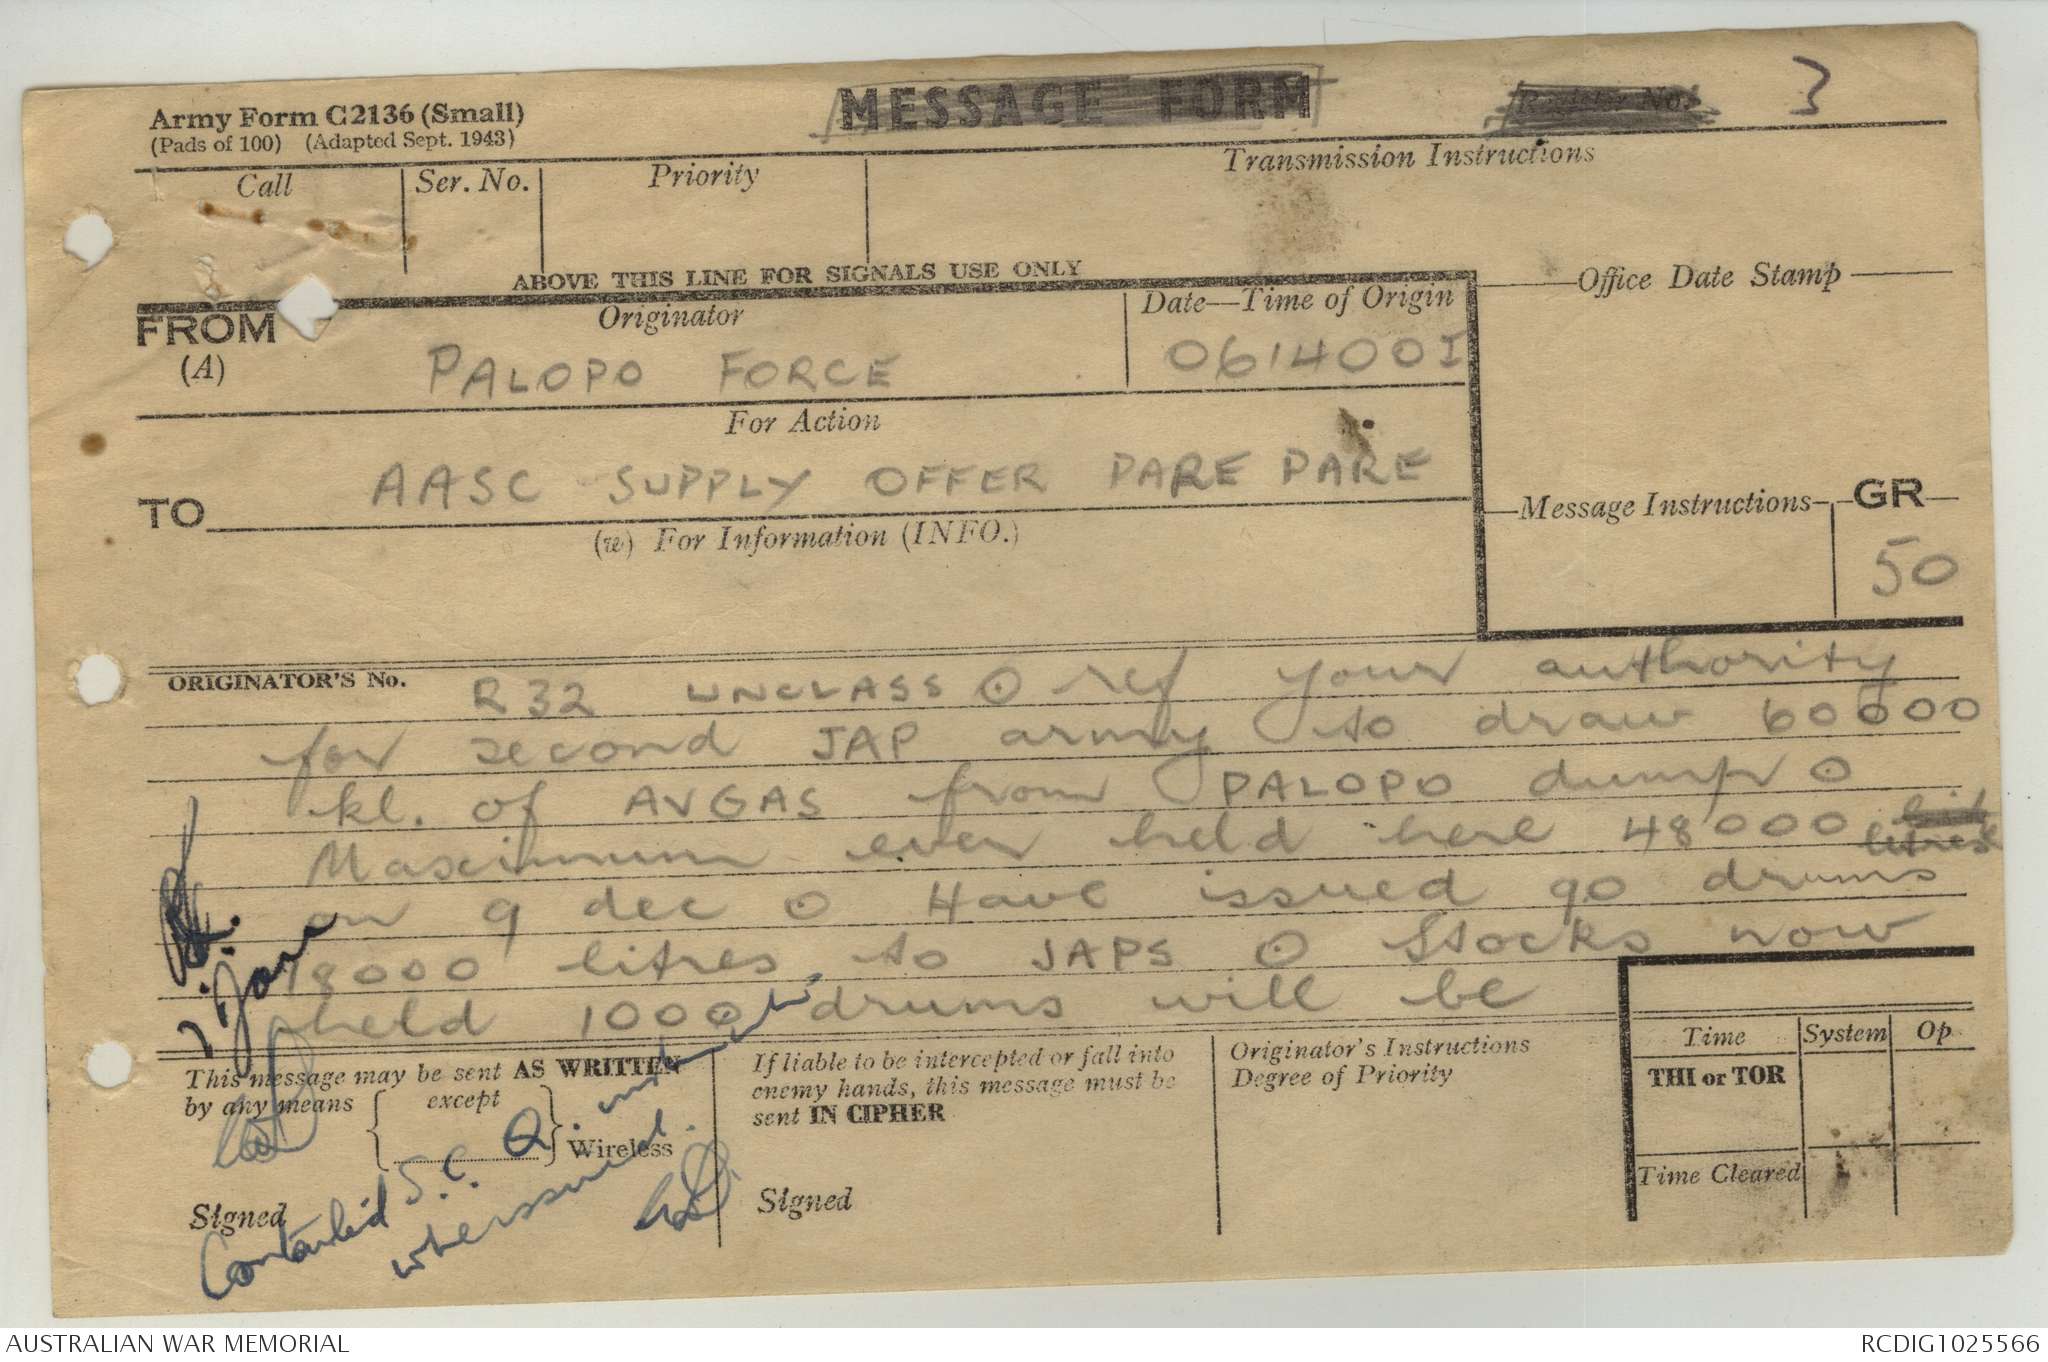 Army Form C2136 (Small)
(Pads of 100) (Adapted Sept. 1943)
MESSAGE FORM
Register No.
3
Call
Ser. No.
Priority
Transmission Instructions
ABOVE THIS LINE FOR SIGNALS USE ONLY
FROM
(A)
Originator
PALOPO FORCE
Date—Time of Origin
061400I
Office Date Stamp
For Action
TO
AASC SUPPLY OFFER PARE PARE
(w) For Information (INFO.)
Message Instructions
GR
50
ORIGINATOR'S No.
R32 UNCLASS ⊙ ref your authority
for second JAP army to draw 60000
kl. of AVGAS from PALOPO dump ⊙
Maximum ever held here 48000 lit
litres
on 9 dec ⊙ Have issued 90 drums
18000 litres to JAPS ⊙ Stocks now
held 1000 drums will be
7 Jan
This message may be sent AS WRITTEN
by any means
except
Wireless
Signed
If liable to be intercepted or fall into
enemy hands, this message must be
sent IN CIPHER
Signed
Originator's Instructions
Degree of Priority
Time
System
Op
THI or TOR
Time Cleared
S.C. Q.
AUSTRALIAN WAR MEMORIAL
RCDIG1025566